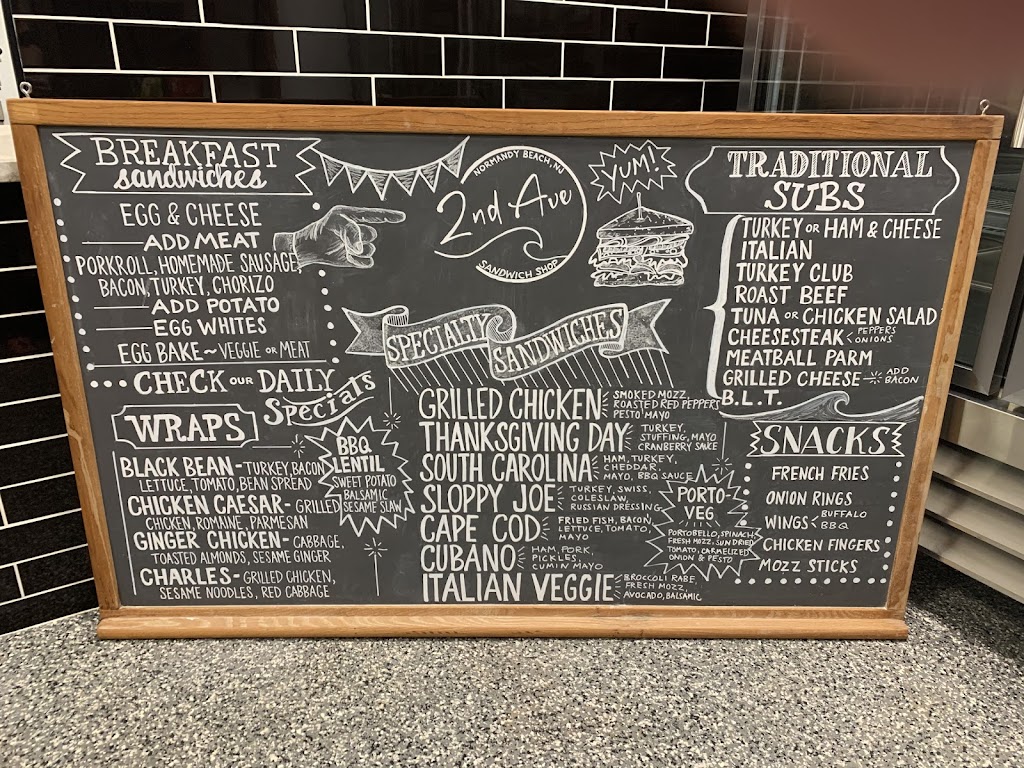 BREAKFAST
sandwiches
EGG & CHEESE
ADD MEAT
PORKROLL, HOMEMADE SAUSAGE,
BACON, TURKEY, CHORIZO
ADD POTATO
EGG WHITES
EGG BAKE ~ VEGGIE OR MEAT
CHECK OUR DAILY
Specials
WRAPS
BLACK BEAN - TURKEY, BACON
LETTUCE, TOMATO, BEAN SPREAD
CHICKEN CAESAR - GRILLED
CHICKEN, ROMAINE, PARMESAN
GINGER CHICKEN - CABBAGE,
TOASTED ALMONDS, SESAME GINGER
CHARLES - GRILLED CHICKEN,
SESAME NOODLES, RED CABBAGE
BBQ
LENTIL
SWEET POTATO
BALSAMIC
SESAME SLAW
NORMANDY BEACH, NJ
2nd Ave
SANDWICH SHOP
YUM!
SPECIALTY
SANDWICHES
GRILLED CHICKEN SMOKED MOZZ,
ROASTED RED PEPPERS
PESTO MAYO
THANKSGIVING DAY TURKEY,
STUFFING, MAYO
CRANBERRY SAUCE
SOUTH CAROLINA HAM, TURKEY,
CHEDDAR,
MAYO, BBQ SAUCE
SLOPPY JOE TURKEY, SWISS,
COLESLAW,
RUSSIAN DRESSING
CAPE COD FRIED FISH, BACON,
LETTUCE, TOMATO,
MAYO
CUBANO HAM, PORK,
PICKLES,
CUMIN MAYO
ITALIAN VEGGIE BROCCOLI RABE,
FRESH MOZZ
AVOCADO, BALSAMIC
PORTO-
VEG
PORTOBELLO, SPINACH
FRESH MOZZ. SUN DRIED
TOMATO, CARMELIZED
ONION & PESTO
TRADITIONAL
SUBS
TURKEY OR HAM & CHEESE
ITALIAN
TURKEY CLUB
ROAST BEEF
TUNA OR CHICKEN SALAD
CHEESESTEAK PEPPERS
ONIONS
MEATBALL PARM
GRILLED CHEESE ADD
BACON
B.L.T.
SNACKS
FRENCH FRIES
ONION RINGS
WINGS BUFFALO
BBQ
CHICKEN FINGERS
MOZZ STICKS